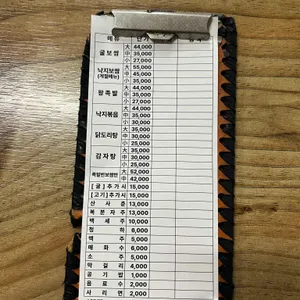 메뉴 단가
굴보쌈 대 44,000
중 35,000
소 27,000
낙지보쌈 대 55,000
(계절메뉴) 중 44,000
소 35,000
왕족발 대 44,000
중 35,000
소 27,000
낙지볶음 대 44,000
중 35,000
소 30,000
닭도리탕 대 35,000
중 30,000
소 25,000
감자탕 대 35,000
중 30,000
소 25,000
대 52,000
중 42,000
[굴]추가시 15,000
[고기]추가시 15,000
산사춘 13,000
복분자주 13,000
백세주 10,000
청하 6,000
맥주 5,000
매화수 6,000
소주 5,000
막걸리 4,000
공기밥 1,000
음료수 2,000
사리면 2,000